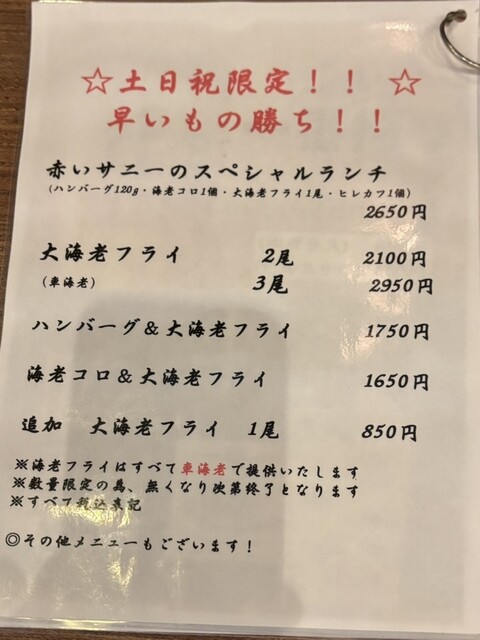 ☆土日祝限定！！ ☆
早いもの勝ち！！
赤いサニーのスペシャルランチ
(ハンバーグ120g・海老コロ1個・大海老フライ1尾・ヒレカツ1個)
2650円
大海老フライ 2尾 2100円
(車海老) 3尾 2950円
ハンバーグ&大海老フライ 1750円
海老コロ&大海老フライ 1650円
追加 大海老フライ 1尾 850円
※海老フライはすべて車海老で提供いたします
※数量限定の為、無くなり次第終了となります
※すべて税込表記
◎その他メニューもございます！